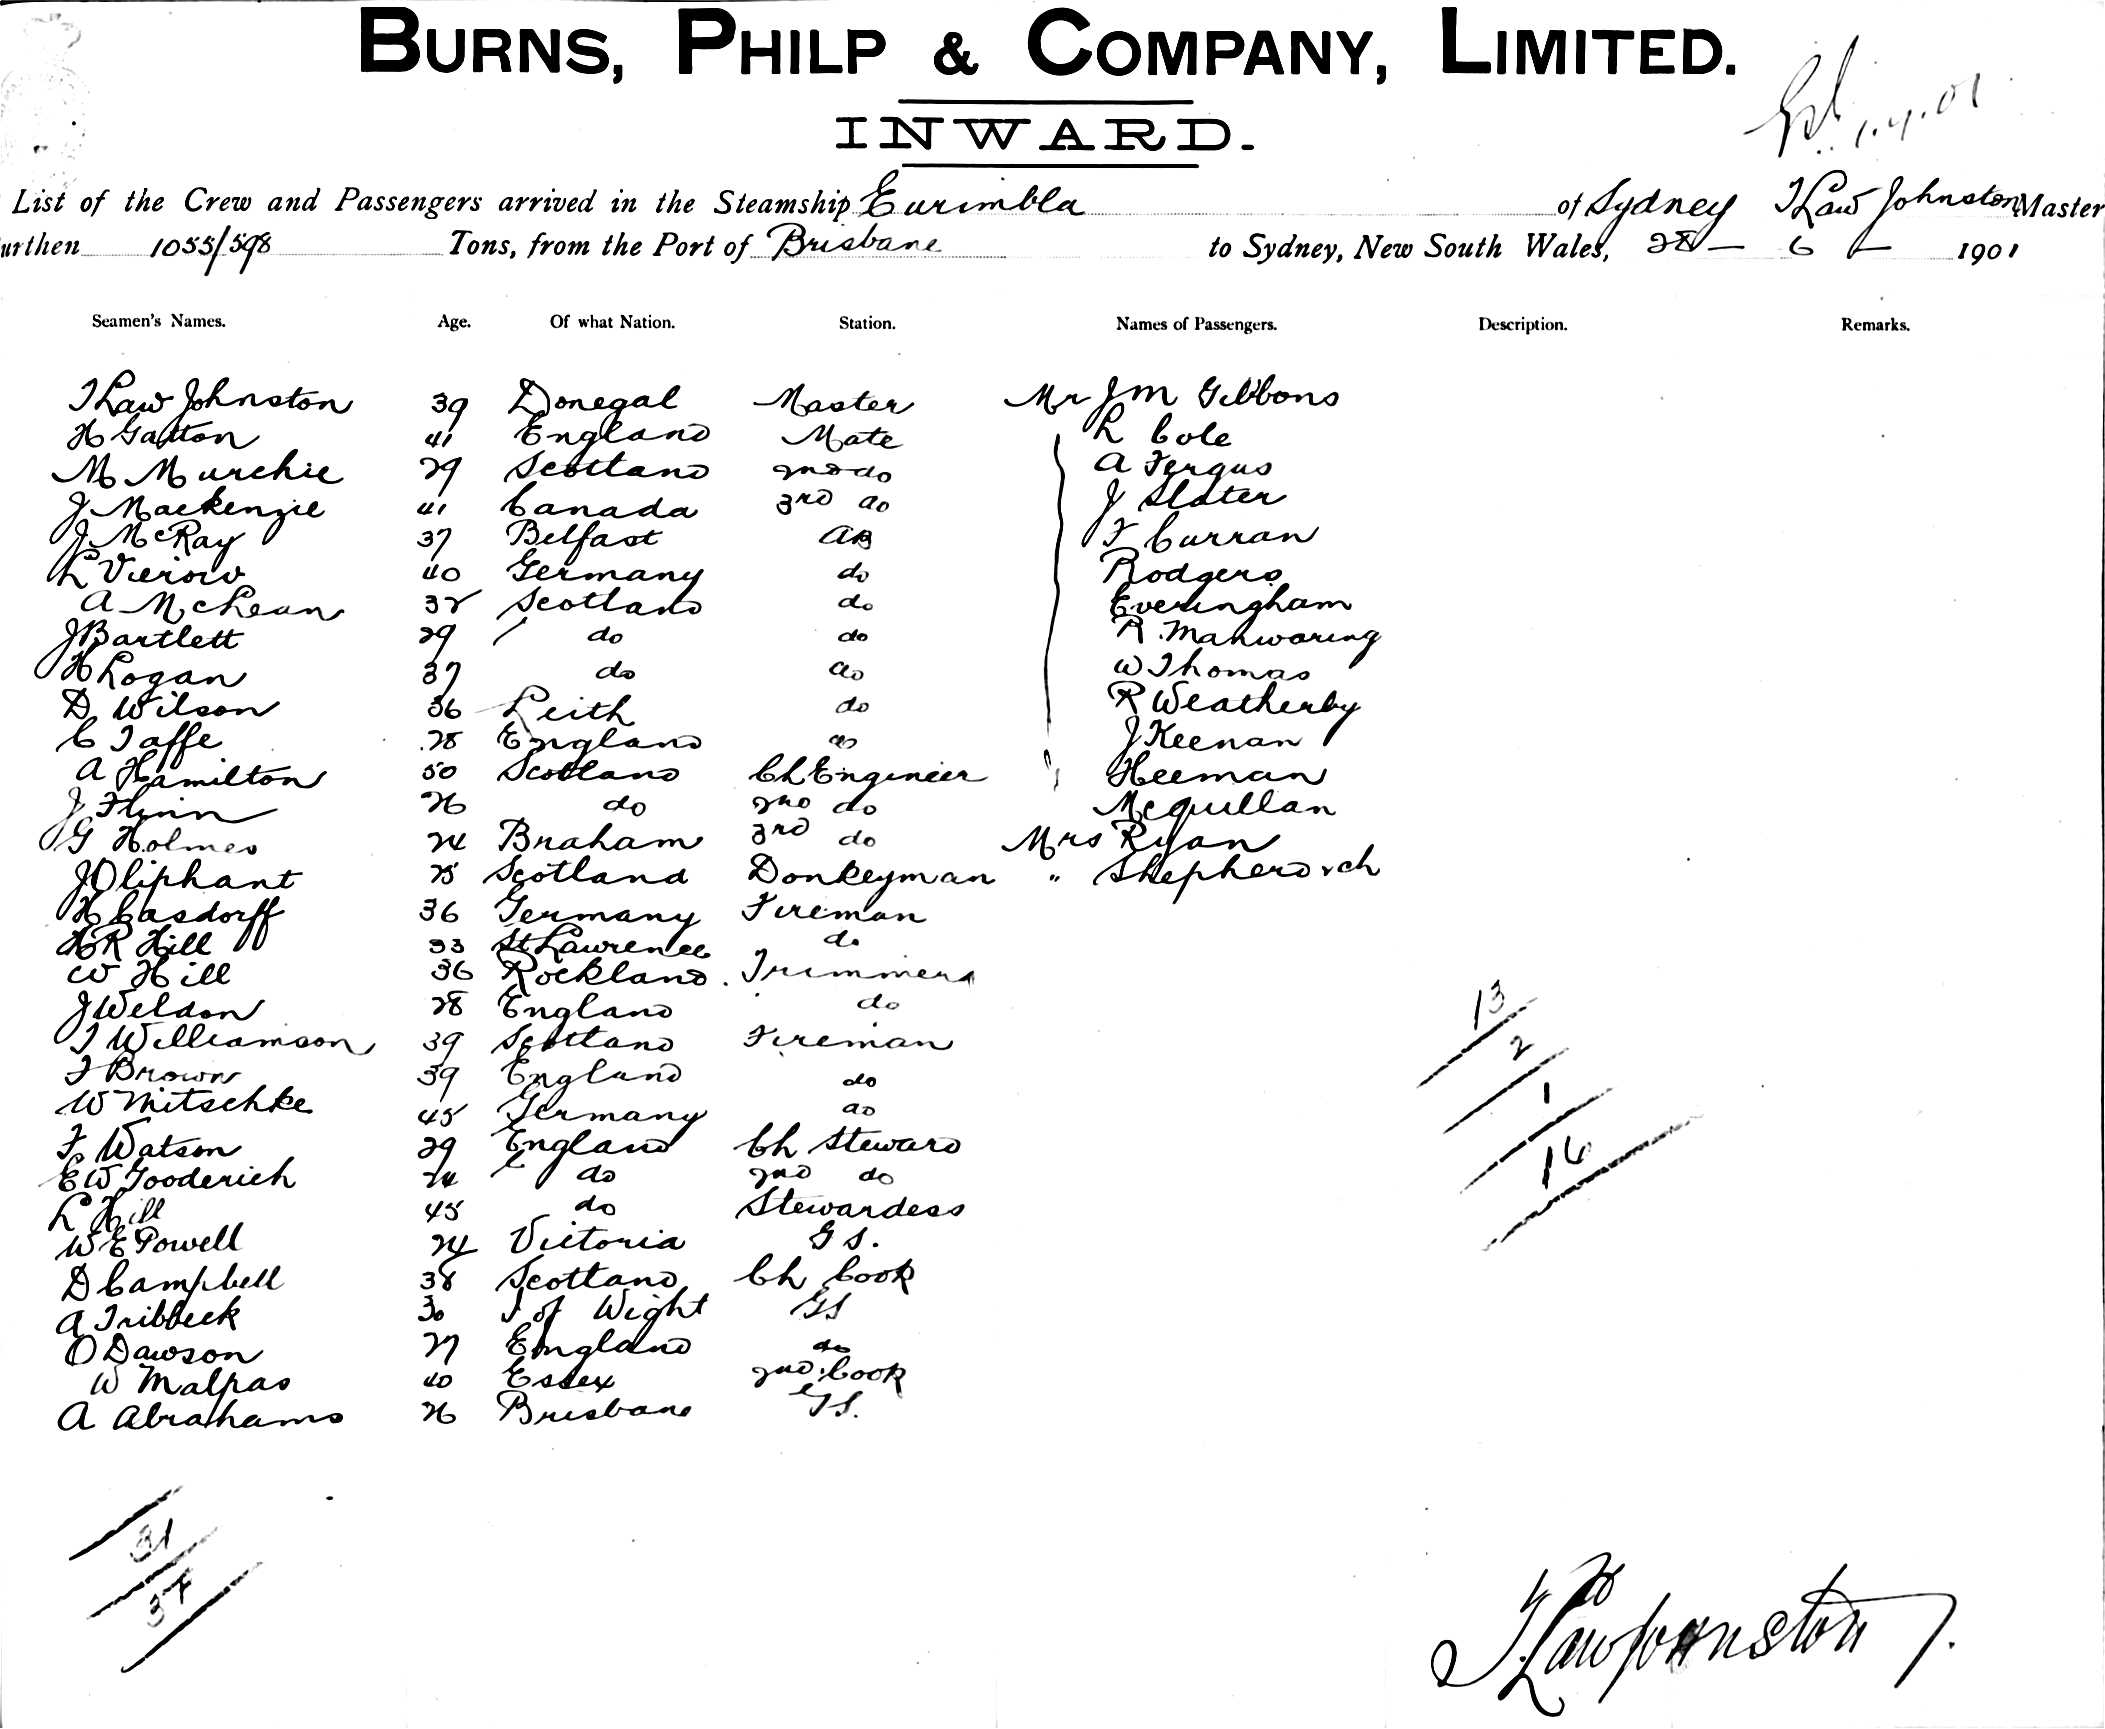 BURNS, PHILP & COMPANY, LIMITED.
INWARD.
1.7.01
List of the Crew and Passengers arrived in the Steamship Eurimbla of Sydney T Law Johnston Master
urthen 1055/598 Tons, from the Port of Brisbane to Sydney, New South Wales, 28 — 6 — 1901
Seamen's Names. Age. Of what Nation. Station. Names of Passengers. Description. Remarks.
T Law Johnston 39 Donegal Master Mr J M Gibbons
H Gatton 41 England Mate L Cole
M Murchie 29 Scotland 2nd do A Fergus
J Mackenzie 41 Canada 3rd do J Slater
J McRay 37 Belfast AB F Curran
L Vierow 40 Germany do Rodgers
A McLean 38 Scotland do Everingham
J Bartlett 29 do do R. Manwaring
H Logan 37 do do W Thomas
D Wilson 36 Leith do R Weatherby
C Taffe 28 England do J Keenan
A Hamilton 50 Scotland Ch Engineer Heeman
J Flynn 26 do 2nd do McQuillan
G Holmes 24 Braham 3rd do Mrs Ryan
J Oliphant 25 Scotland Donkeyman " Shepherd & ch
H Casdorff 36 Germany Fireman
H R Hill 33 St Lawrence do
W Hill 36 Rockland. Trimmers
J Weldon 28 England do
T Williamson 39 Scotland Fireman
F Brown 39 England do
W Mitschke 45 Germany do
F Watson 29 England Ch Steward
E W Gooderich 24 do 2nd do
L Hill 45 do Stewardess
W E Powell 24 Victoria G S.
D Campbell 38 Scotland Ch Cook
A Tribbeck 30 I of Wight GS
O Dawson 27 England do
W Malpas 40 Essex 2nd Cook
A Abrahams 26 Brisbane GS.
13
2
1
16
31
37
T Law Johnston